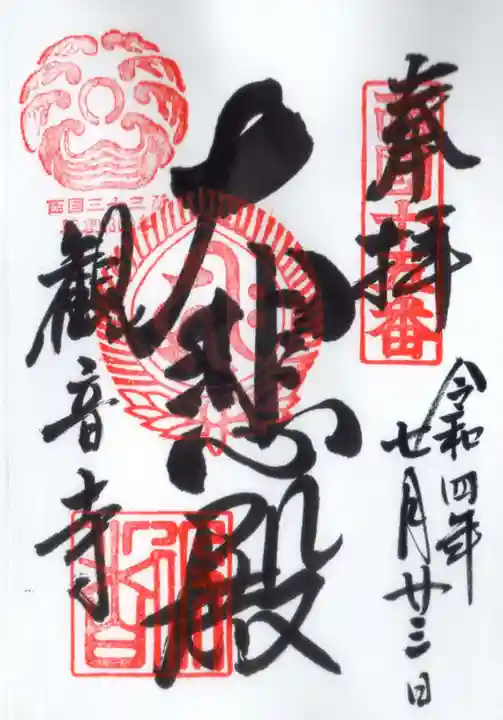 奉拝
西国十五番
令和四年
七月廿三日
大悲殿
西国三十三所
観音寺